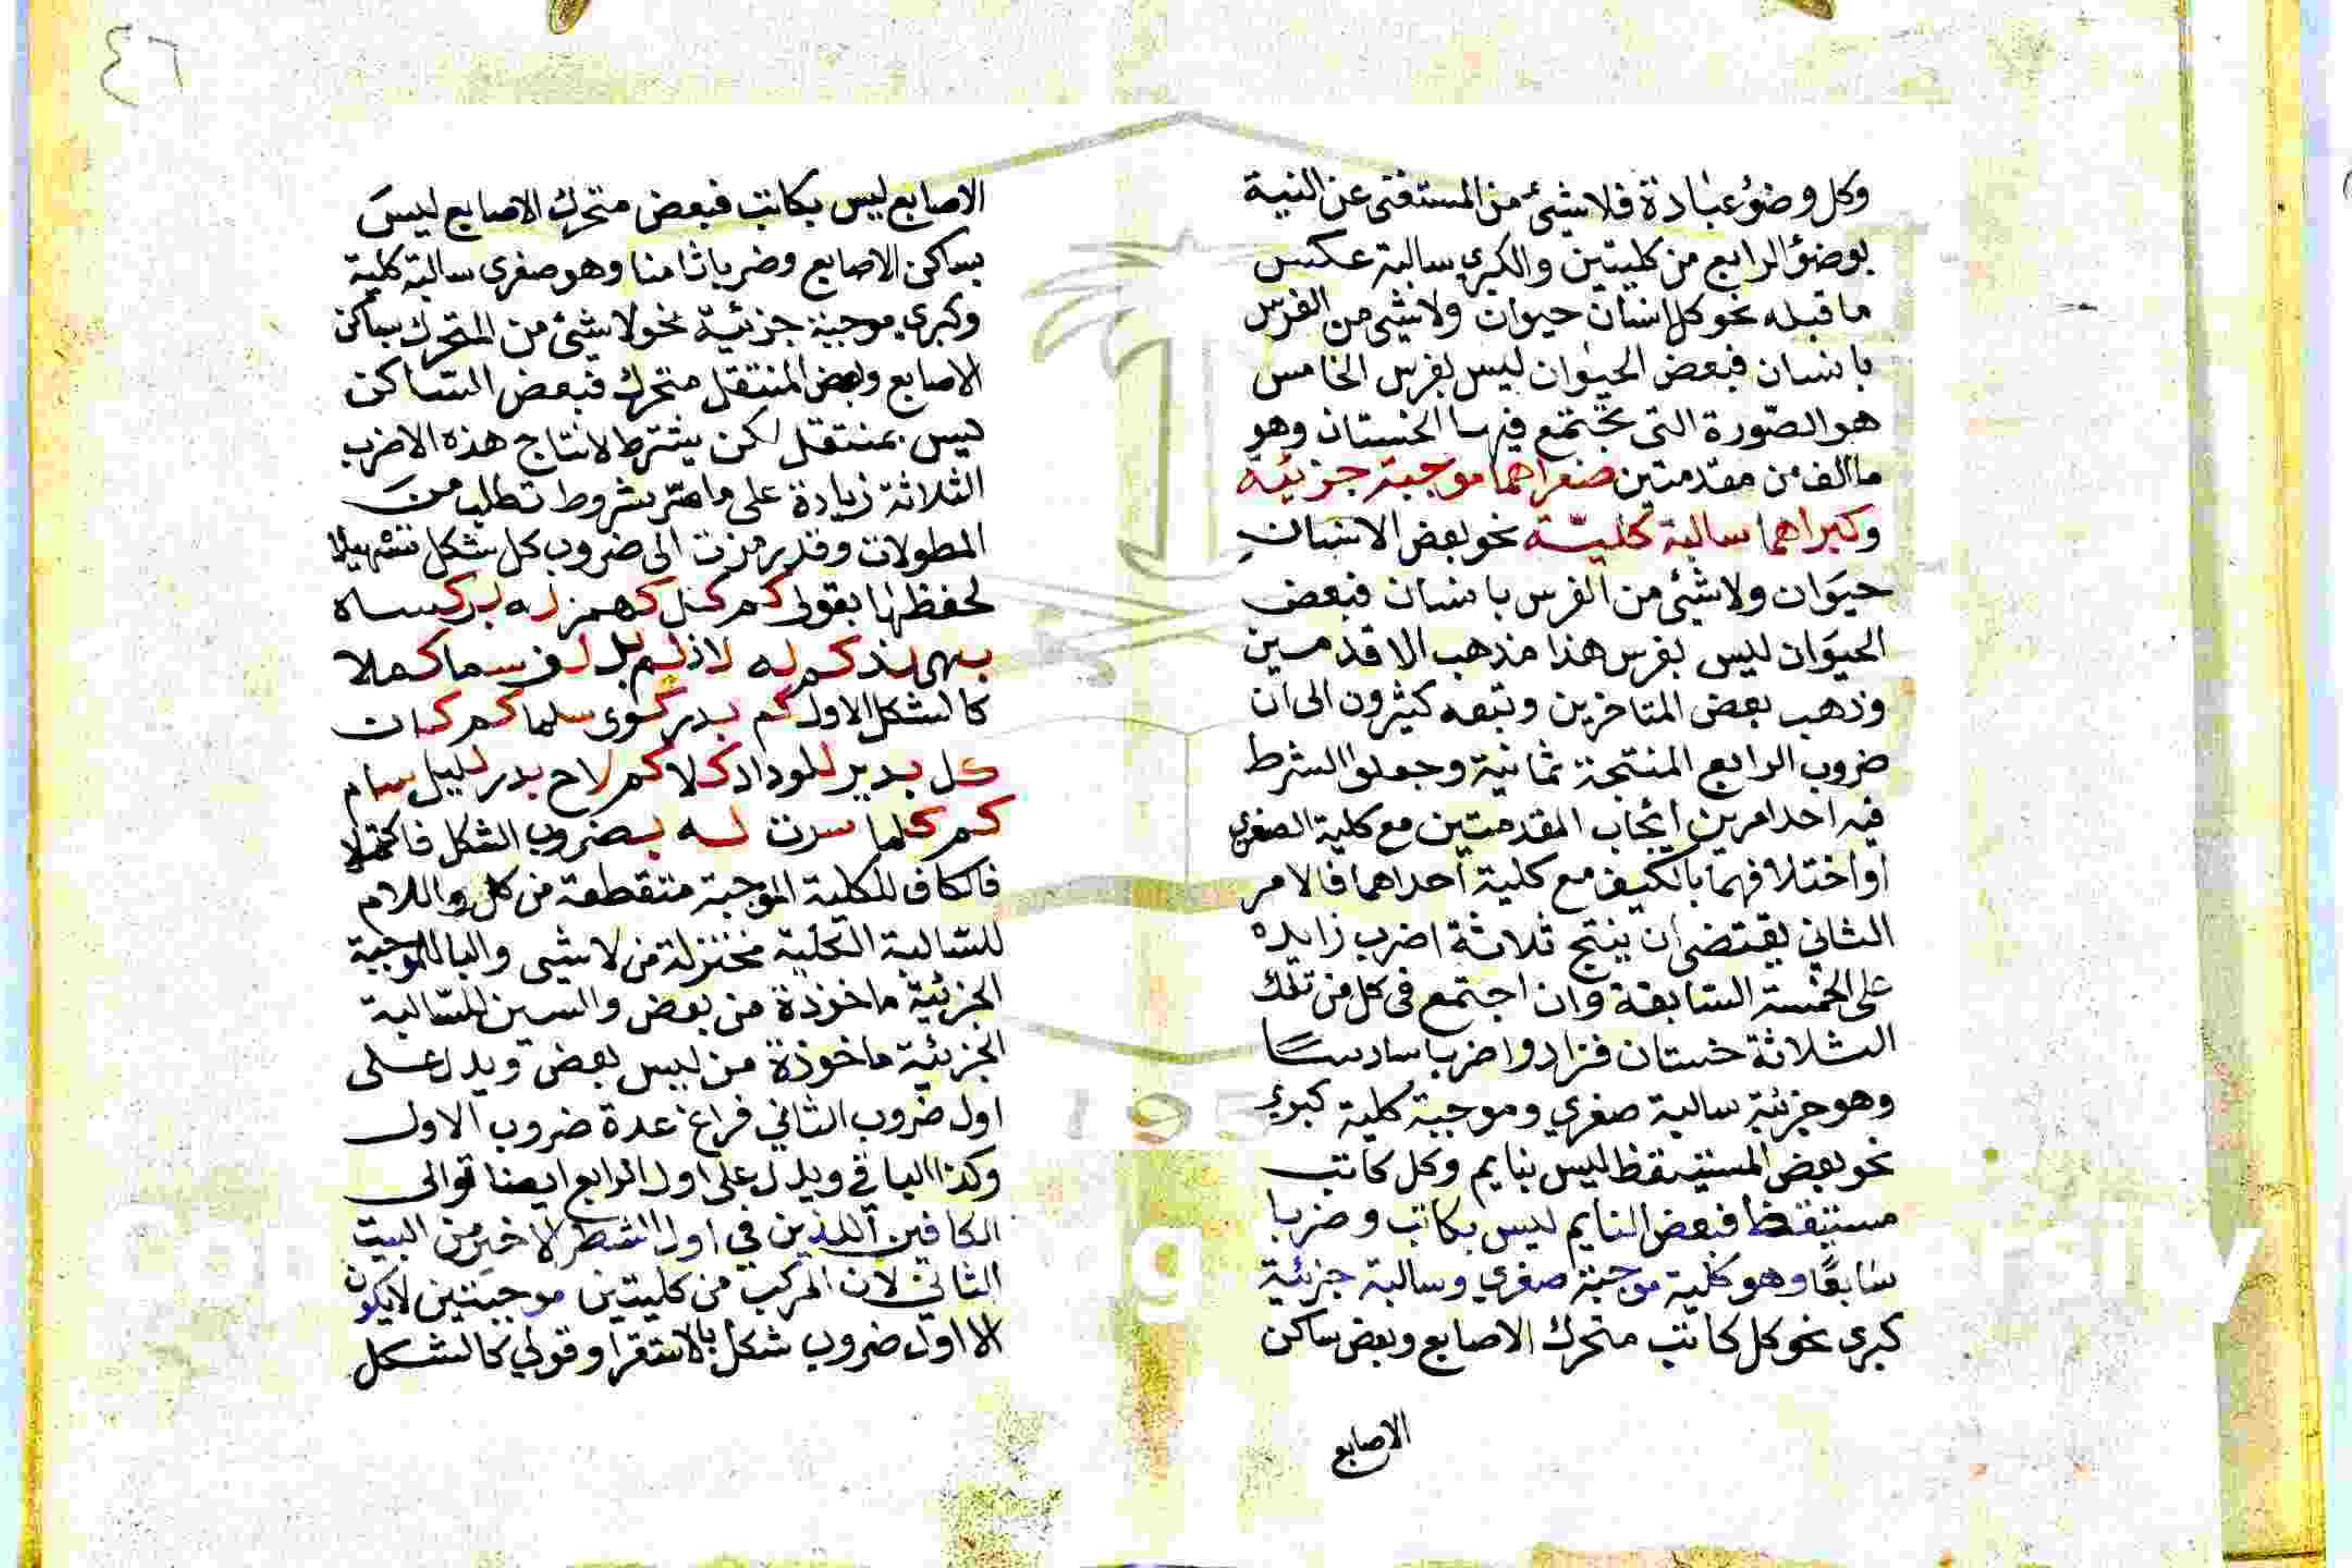 وكل وضوء عبادة فلا شئ من المستغنى عن النية
بوضؤ الرابع من كليتين والكبرى سالبة عكس
ما قبله نحو كل انسان حيوان ولا شئ من الفرس
بانسان فبعض الحيوان ليس بفرس الخامس
هو الصورة التى تجتمع فيها الخستان وهو
ما الف من مقدمتين صغراهما موجبة جزئية
وكبراهما سالبة كلية نحو بعض الانسان
حيوان ولا شئ من الفرس بانسان فبعض
الحيوان ليس بفرس هذا مذهب الاقدمين
وذهب بعض المتاخرين وتبعه كثيرون الى ان
ضروب الرابع المنتجة ثمانية وجعلوا الشرط
فيه احد امرين ايجاب المقدمتين مع كلية الصغرى
او اختلافهما بالكيف مع كلية احداهما فالامر
الثاني يقتضى ان ينتج ثلاثة اضرب زايده
على الخمسة السابقة وان اجتمع فى كل من تلك
الثلاثة خستان فزادوا ضربا سادسا
وهو جزئية سالبة صغري وموجبة كلية كبرى
نحو بعض المستيقظ ليس بنايم وكل كاتب
مستيقظ فبعض النايم ليس بكاتب وضربا
سابعا وهو كلية موجبة صغري وسالبة جزئية
كبرى نحو كل كاتب متحرك الاصابع وبعض ساكن
الاصابع
٤٦
الاصابع ليس بكاتب فبعض متحرك الاصابع ليس
بساكن الاصابع وضربا ثامنا وهو صغرى سالبة كلية
وكبرى موجبة جزئية نحو لا شئ من المتحرك بساكن
الاصابع وبعض المنتقل متحرك فبعض الساكن
ليس بمنتقل لكن يشترط لانتاج هذه الاضرب
الثلاثة زيادة على ما مر بشروط تطلب من
المطولات وقد رمزت الى ضروب كل شكل تسهيلا
لحفظها بقولى كم كل
لاذ بل سما كملا
كالشكل الاول كم بدر سلما كم
كل بدير كلا كم لاح بدر سام
كم كلما سرت له بضروب الشكل فاكتملا
فالكاف للكلية الموجبة متقطعة من كل واللام
للسالبة الكلية مختزلة من لا شيى والبا للموجبة
الجزئية ماخوذة من بعض والسين للسالبة
الجزئية ماخوذة من ليس بعض ويدل على
اول ضروب الثاني فراغ عدة ضروب الاول
وكذا الباقي ويدل على اول الرابع ايضا توالى
الكافين اللذين في اول الشطر الاخير من البيت
الثاني لان المركب من كليتين موجبتين لا يكون
الا اول ضروب شكل بالاستقرا وقولي كالشكل